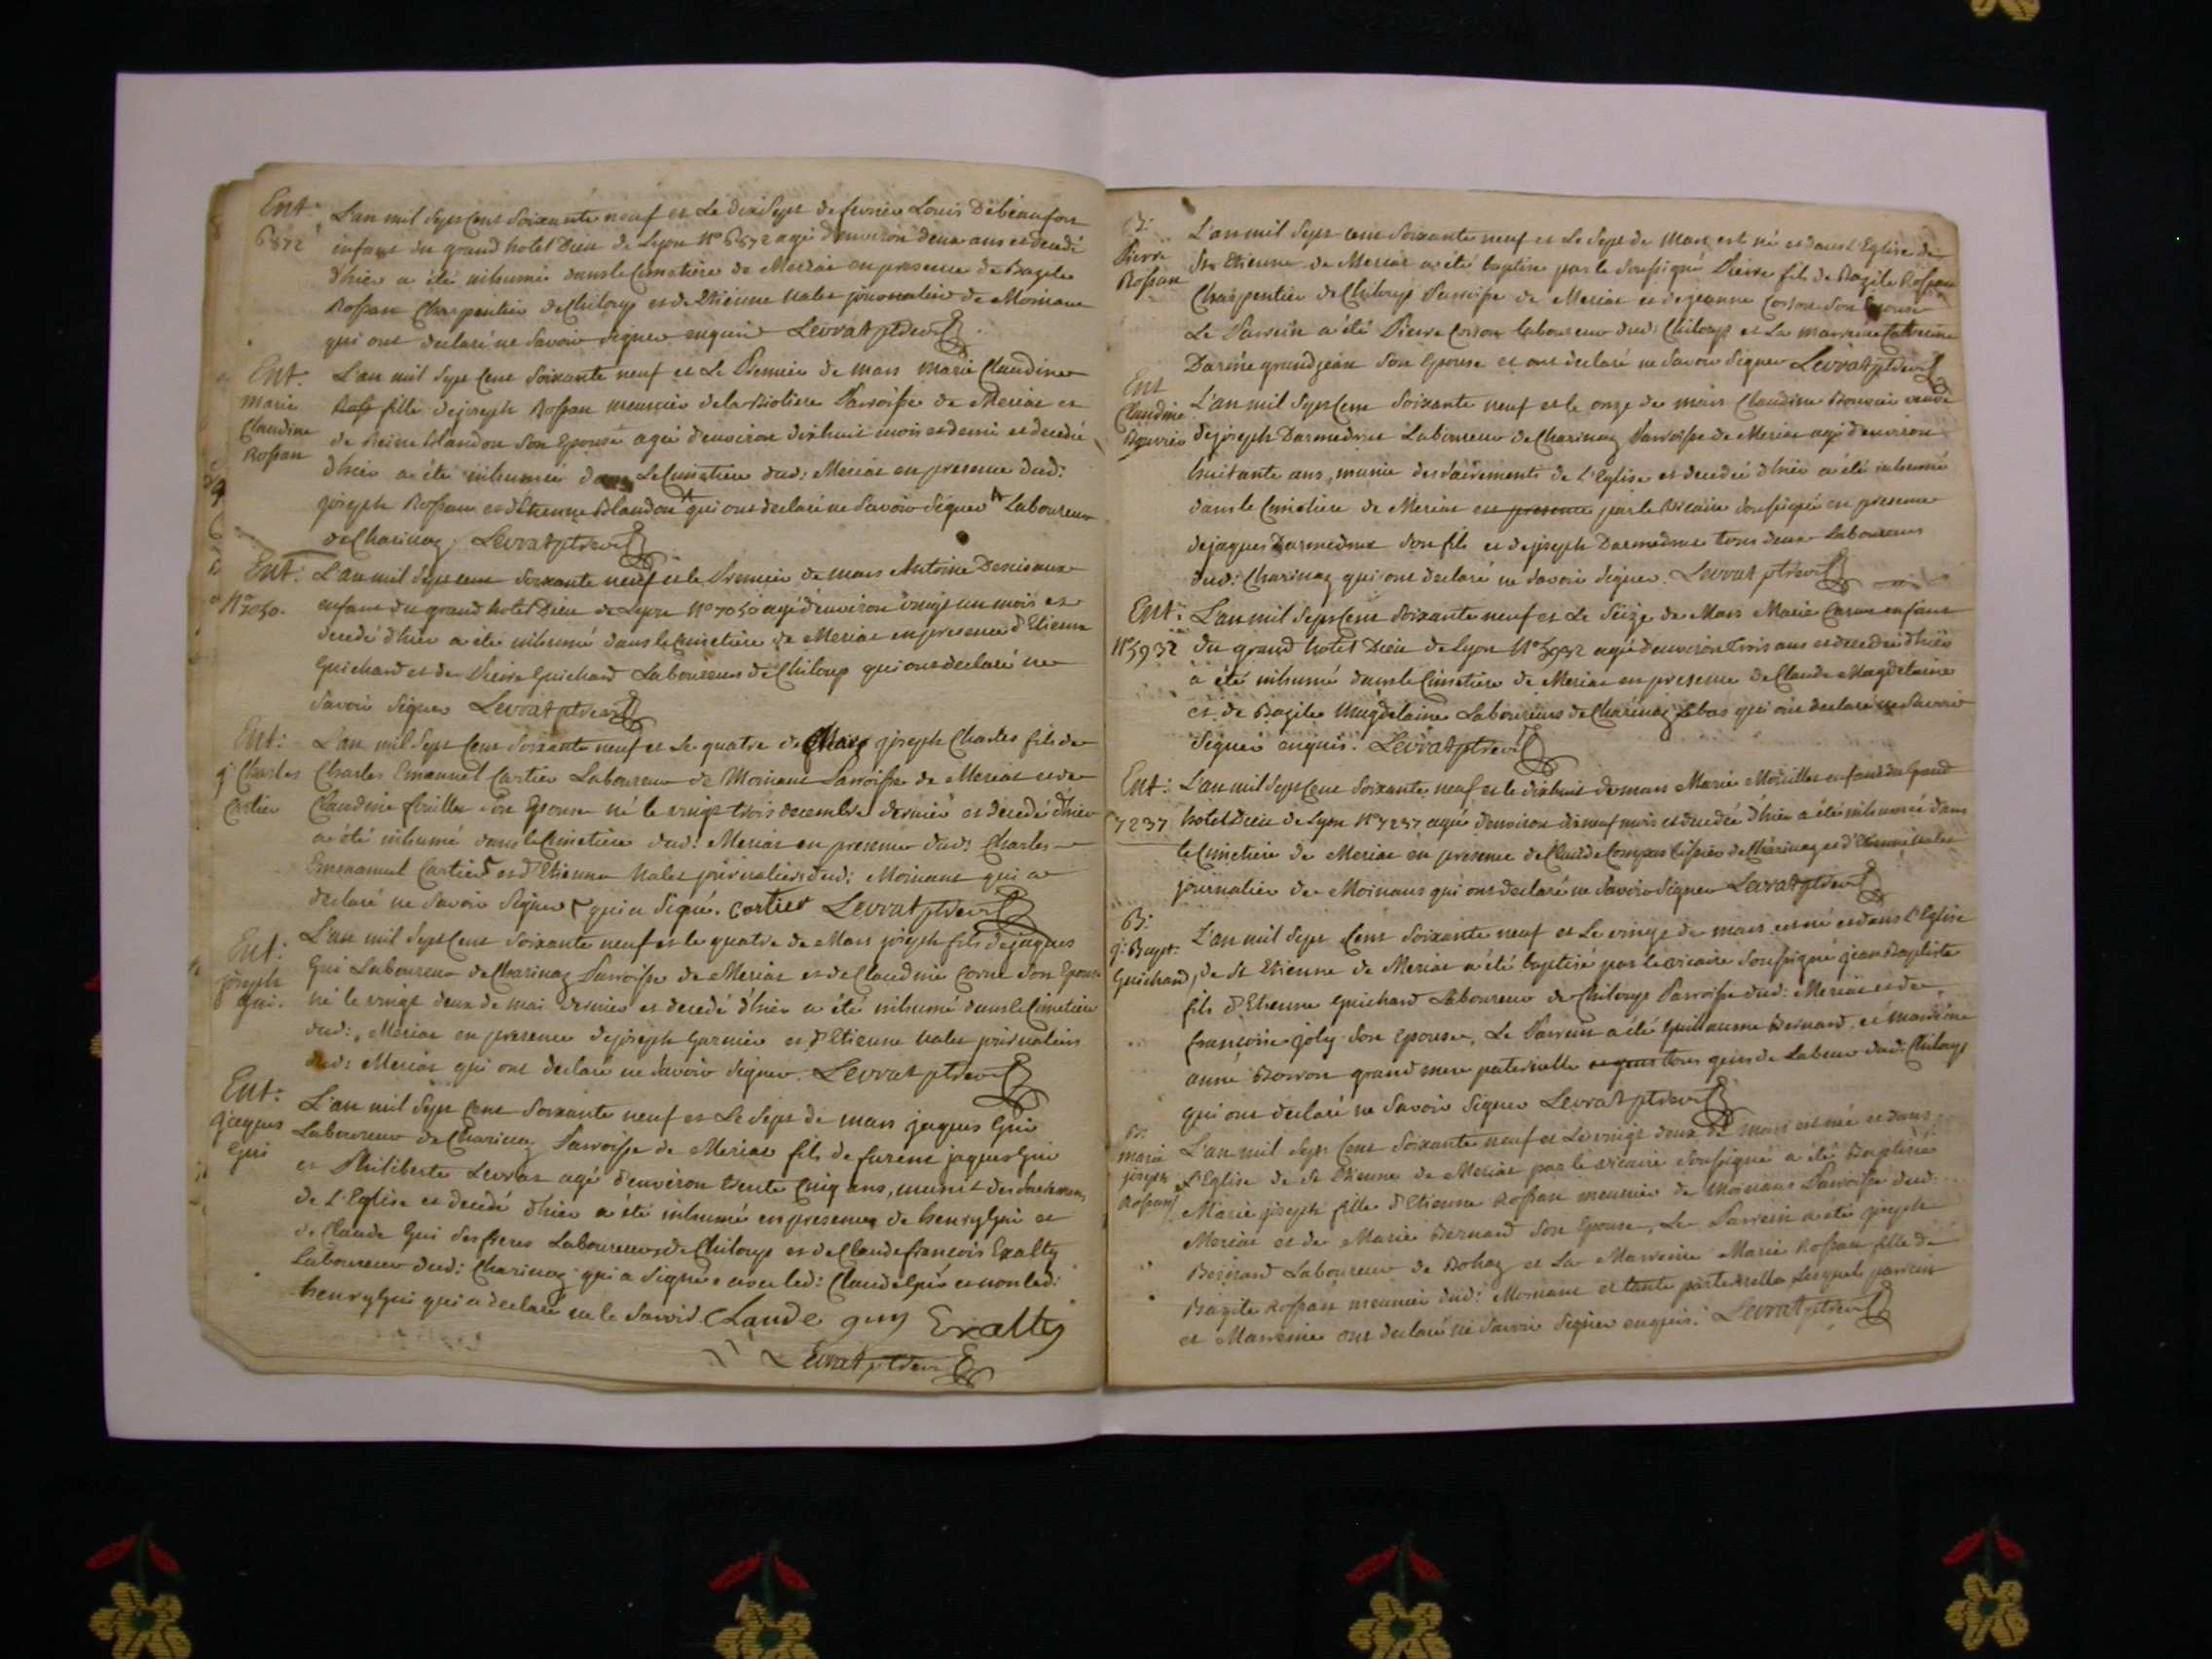 Ent: L'an mil sept Cent soixante neuf et Le dix sept de fevrier Louis Debeaufort
6872 enfant du grand hotel Dieu de Lyon N° 6872 agé d'environ deux ans et decedé
d'hier a été inhumé dans le Cimetière de Meriat en presence de Bazile
Rossan Charpentier de Chiloup et de Etienne Nalet journalier de Moinans
qui ont declaré ne savoir signer enquis Levrat ptre vic
Ent. L'an mil sept Cent soixante neuf et Le Premier de mars Marie Claudine
marie fille de joseph Rossan meunier de la Parroisse de Meriat et
Claudine de Reine blandon son Epouse agée d'environ dix huit mois et demi et decedée
Rossan
d'hier a été inhumée dans Le Cimetiere dud: Meriat en presence dud:
joseph Rossan et d'Etienne blandon qui ont declaré ne savoir signer Laboureur
de Charinaz Levrat ptre vic
Ent: L'an mil sept cent soixante neuf et le Premier de mars Antoine
N° 7050. enfant du grand hotel Dieu de Lyon N° 7050 agé d'environ vingt un mois et
decedé d'hier a été inhumé dans le Cimetiere de Meriat en presence d'Etienne
Guichard et de Pierre Guichard Laboureurs de Chiloup qui ont declaré ne
savoir signer Levrat ptre vic
Ent: L'an mil sept Cent soixante neuf et Le quatre de Mars joseph Charles fils de
j: Charles Charles Emanuel Cartier Laboureur de Moinans Parroisse de Meriat et de
Cartier Claudine son Epouse né le vingt trois decembre dernier et decedé d'hier
a été inhumé dans le Cimetiere dud: Meriat en presence dud: Charles
Emmanuel Cartier et d'Etienne Nalet journaliers dud: Moinans qui a
declaré ne savoir signer qui a signé. Cartier Levrat ptre vic
Ent: L'an mil sept Cent soixante neuf et le quatre de Mars joseph fils de jaques
joseph Gui Laboureur de Charinaz Parroisse de Meriat et de Claudine Corne son Epouse
gui. né le vingt deux de mai dernier et decedé d'hier a été inhumé dans le Cimetiere
dud: Meriat en presence de joseph Garnier et d'Etienne Nalet journaliers
dud: Meriat qui ont declaré ne savoir signer. Levrat ptre vic
Ent: L'an mil sept Cent soixante neuf et Le sept de mars jaques Gui
jaques Laboureur de Charinaz Parroisse de Meriat fils de furent jaques Gui
Gui et Philiberte Levrat agé d'environ trente Cinq ans, munit des sacremens
de L'Eglise et decedé d'hier a été inhumé en presence de henry Gui et
de Claude Gui ses freres Laboureurs de Chiloup et de Claude francois Exalty
Laboureur dud: Charinaz qui a signé avec led: Claude Gui et non led:
henry Gui qui a declaré ne le savoir. Claude guy Exalty
Levrat ptre vic
B: L'an mil sept cent soixante neuf et Le sept de Mars est né et dans L'Eglise de
Pierre St. Etienne de Meriat a été baptisé par le soussigné Pierre fils de Bazile Rossan
Rossan Charpentier de Chiloup Parroisse de Meriat et de jeanne Corson son Epouse
Le Parrein a été Pierre Corson laboureur dud: Chiloup et La marreine Catherine
Darme grandjean son Epouse et ont declaré ne savoir signer Levrat ptre vic
Ent L'an mil sept Cent soixante neuf et le onze de mars Claudine Bouvier veuve
Claudine de joseph Darmedrus Laboureur de Charinaz Parroisse de Meriat agée d'environ
Bouvier
huitante ans, munie des sacrements de L'Eglise et decedée d'hier a été inhumée
dans le Cimetiere de Meriat en presence par le Vicaire soussigné en presence
de jaques Darmedrus son fils et de joseph Darmedrus tous deux Laboureurs
dud: Charinaz qui ont declaré ne savoir signer. Levrat ptre vic
Ent: L'an mil sept Cent soixante neuf et Le seize de Mars Marie enfant
N° 5932 du grand hotel Dieu de Lyon N° 5932 agée d'environ trois ans et decedée d'hier
a été inhumé dans le Cimetiere de Meriat en presence de Claude Magdelaine
et de Bazile Magdelaine Laboureurs de Charinaz Le bas qui ont declaré ne savoir
signer enquis. Levrat ptre vic
Ent: L'an mil sept Cent soixante neuf et le dix huit de mars Marie enfant du Grand
7237 hotel Dieu de Lyon N° 7237 agée d'environ dix neuf mois et decedée d'hier a été inhumée dans
le Cimetiere de Meriat en presence de Claude Compas tissier de Charinaz et d'Etienne Nalet
journalier de Moinans qui ont declaré ne savoir signer Levrat ptre vic
B: L'an mil sept Cent soixante neuf et Le vingt de mars est né et dans L'Eglise
j: Bapt: de St Etienne de Meriat a été baptisé par le vicaire soussigné jean Baptiste
Guichard, fils d'Etienne Guichard Laboureur de Chiloup Parroisse dud: Meriat et de
francoise joly son Epouse, Le Parrein a été Guillaume Bernard, et marreine
anne Borron grand mere paternelle et gens tous gens de Labeur dud: Chiloup
qui ont declaré ne savoir signer Levrat ptre vic
B: L'an mil sept Cent soixante neuf et Le vingt deux de mars est née et dans
marie L'Eglise de St Etienne de Meriat par le vicaire soussigné a été Baptisée
joseph
Rossan Marie joseph fille d'Etienne Rossan meunier de Moinans Parroisse dud:
Meriat et de Marie Bernard son Epouse, Le Parrein a été joseph
Bernard Laboureur de Bohaz et La Marreine Marie Rossan fille de
Bazile Rossan meunier dud: Moinans et tante paternelle Lesquels parrein
et Marreine ont declaré ne savoir signer enquis. Levrat ptre vic